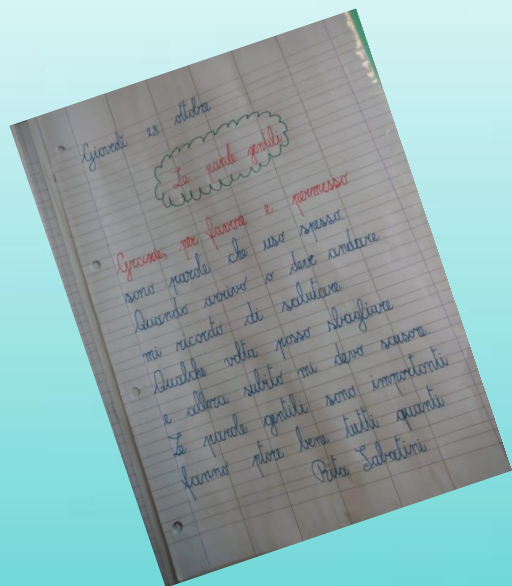 Giovedì 28 ottobre
Le parole gentili
Grazie, per favore e permesso
sono parole che uso spesso.
Quando arrivo o devo andare
mi ricordo di salutare.
Qualche volta posso sbagliare
e allora subito mi devo scusare.
Le parole gentili sono importanti
fanno stare bene tutti quanti
Rita Sabatini